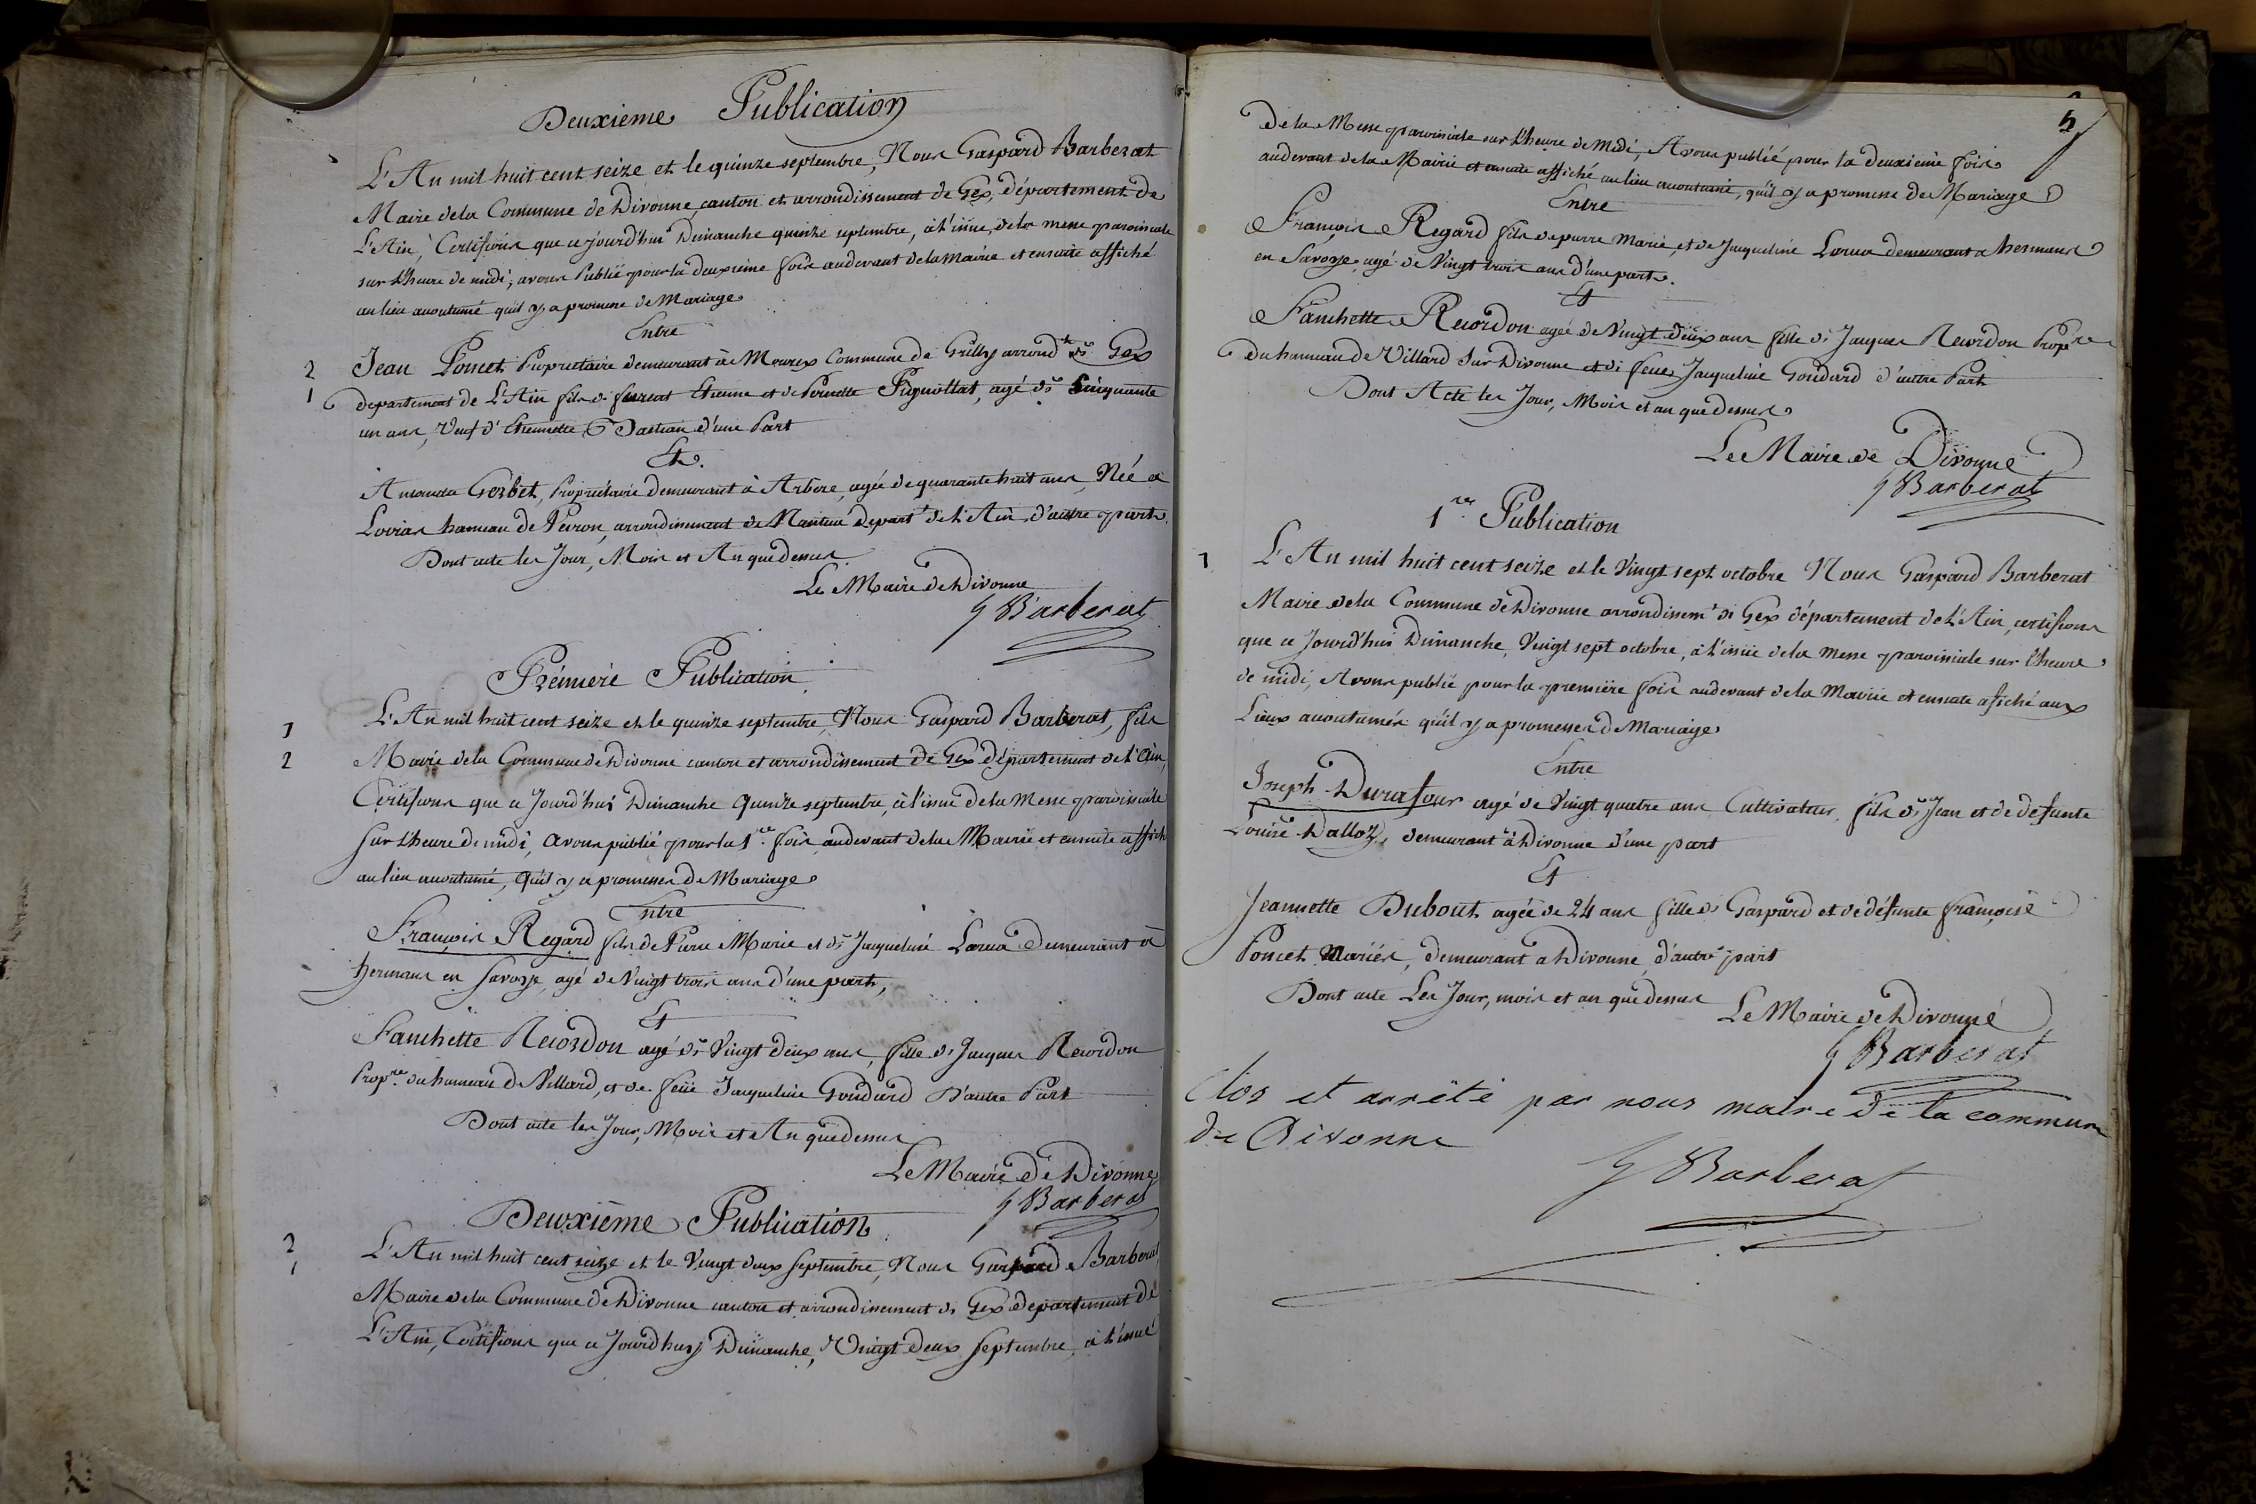 Deuxième Publication
L'An mil huit cent seize et le quinze septembre, Nous Gaspard Barberat
Maire de la Commune de Divonne, canton et arrondissement de Gex, département de
L'Ain, Certifions que ce jourd'hui Dimanche quinze septembre, à l'issue de la messe paroissiale
sur l'heure de midi, avons Publié pour la deuxième fois audevant de la Mairie et ensuite affiché
au lieu accoutumé qu'il y a promesse de Mariage
Entre
2
1
Jean Poncet Proprietaire demeurant à Mourex Commune de Grilly arrondt de Gex
departement de L'Ain fils de feu Etienne et de Pernette Pignollat, agé de Cinquante
un ans, Veuf d'Etiennette Bastian d'une Part
Et
Gerbet, Propriétaire demeurant à Arbere, agée de quarante huit ans, Née à
hameau de Veiron, arrondissement de Nantua depart.t de L'Ain, d'autre part.
Dont acte les Jour, Mois et An que dessus
Le Maire de Divonne
G Barberat
Première Publication
1
2
L'An mil huit cent seize et le quinze septembre, Nous Gaspard Barberat, fils
Maire de la Commune de Divonne canton et arrondissement de Gex département de l'Ain,
Certifions que ce Jourd'hui Dimanche Quinze septembre, à l'issue de la Messe paroissiale
Sur l'heure de midi, avons publié pour la 1.re fois audevant de la Mairie et ensuite affiché
au lieu accoutumé, Qu'il y a promesses de Mariage
Entre
François Regard fils de Pierre Marie et de Jaqueline Laruaz Demeurant à
hermance en Savoye, agé de Vingt trois ans d'une part,
Et
Fanchette Recordon agé de Vingt deux ans, fille de Jaques Recordon
Propre du hameau de Villard, et de feüe Jaqueline Goudard D'autre Part
Dont acte les Jour, Mois et An que dessus
Le Maire de Divonne
G Barberat
Deuxième Publication
2
1
L'An mil huit cent seize et le Vingt deux Septembre, Nous Gaspard Barberat
Maire de la Commune de Divonne canton et arrondissement de Gex departement de
L'Ain, Certifions que ce Jourd'huy Dimanche, Vingt Deux Septembre, à l'issue
5
de la Messe paroissiale sur l'heure de Midi, Avons publié pour la deuxième fois
audevant de la Mairie et ensuite affiché au lieu accoutumé, qu'il y a promesse de Mariage
Entre
François Regard fils de pierre Marie, et de Jaqueline demeurant a hermance
en Savoye, agé de Vingt trois ans d'une part.
Et
Fanchette Recordon agée de Vingt Deux ans fille de Jaques Recordon Propre
du hameau de Villard Sur Divonne et de feue Jaqueline Goudard d'autre Part
Dont Acte les Jour, Mois et an que dessus
Le Maire de Divonne
G Barberat
1.re Publication
1
L'An mil huit cent seize et le Vingt sept octobre Nous Gaspard Barberat
Maire de la Commune de Divonne arrondissem.t de Gex département de L'Ain, certifions
que ce Jourd'hui Dimanche, Vingt sept octobre, à l'issue de la messe paroissiale sur l'heure
de midi, Avons publié pour la première fois audevant de la Mairie et ensuite afiché aux
Lieux accoutumés qu'il y a promesses de Mariage
Entre
Joseph Durafour agé de Vingt quatre ans Cultivateur, fils de Jean et de defunte
Louise Dalloz, demeurant à Divonne d'une part
Et
Jeannette Dubout agée de 24 ans fille de Gaspard et de défunte françoise
Poncet Mariés, demeurant a Divonne, d'autre part
Dont acte Les Jour, mois et an que dessus
Le Maire de Divonne
G Barberat
Clos et arrêté par nous maire de la commune
de Divonne
G Barberat